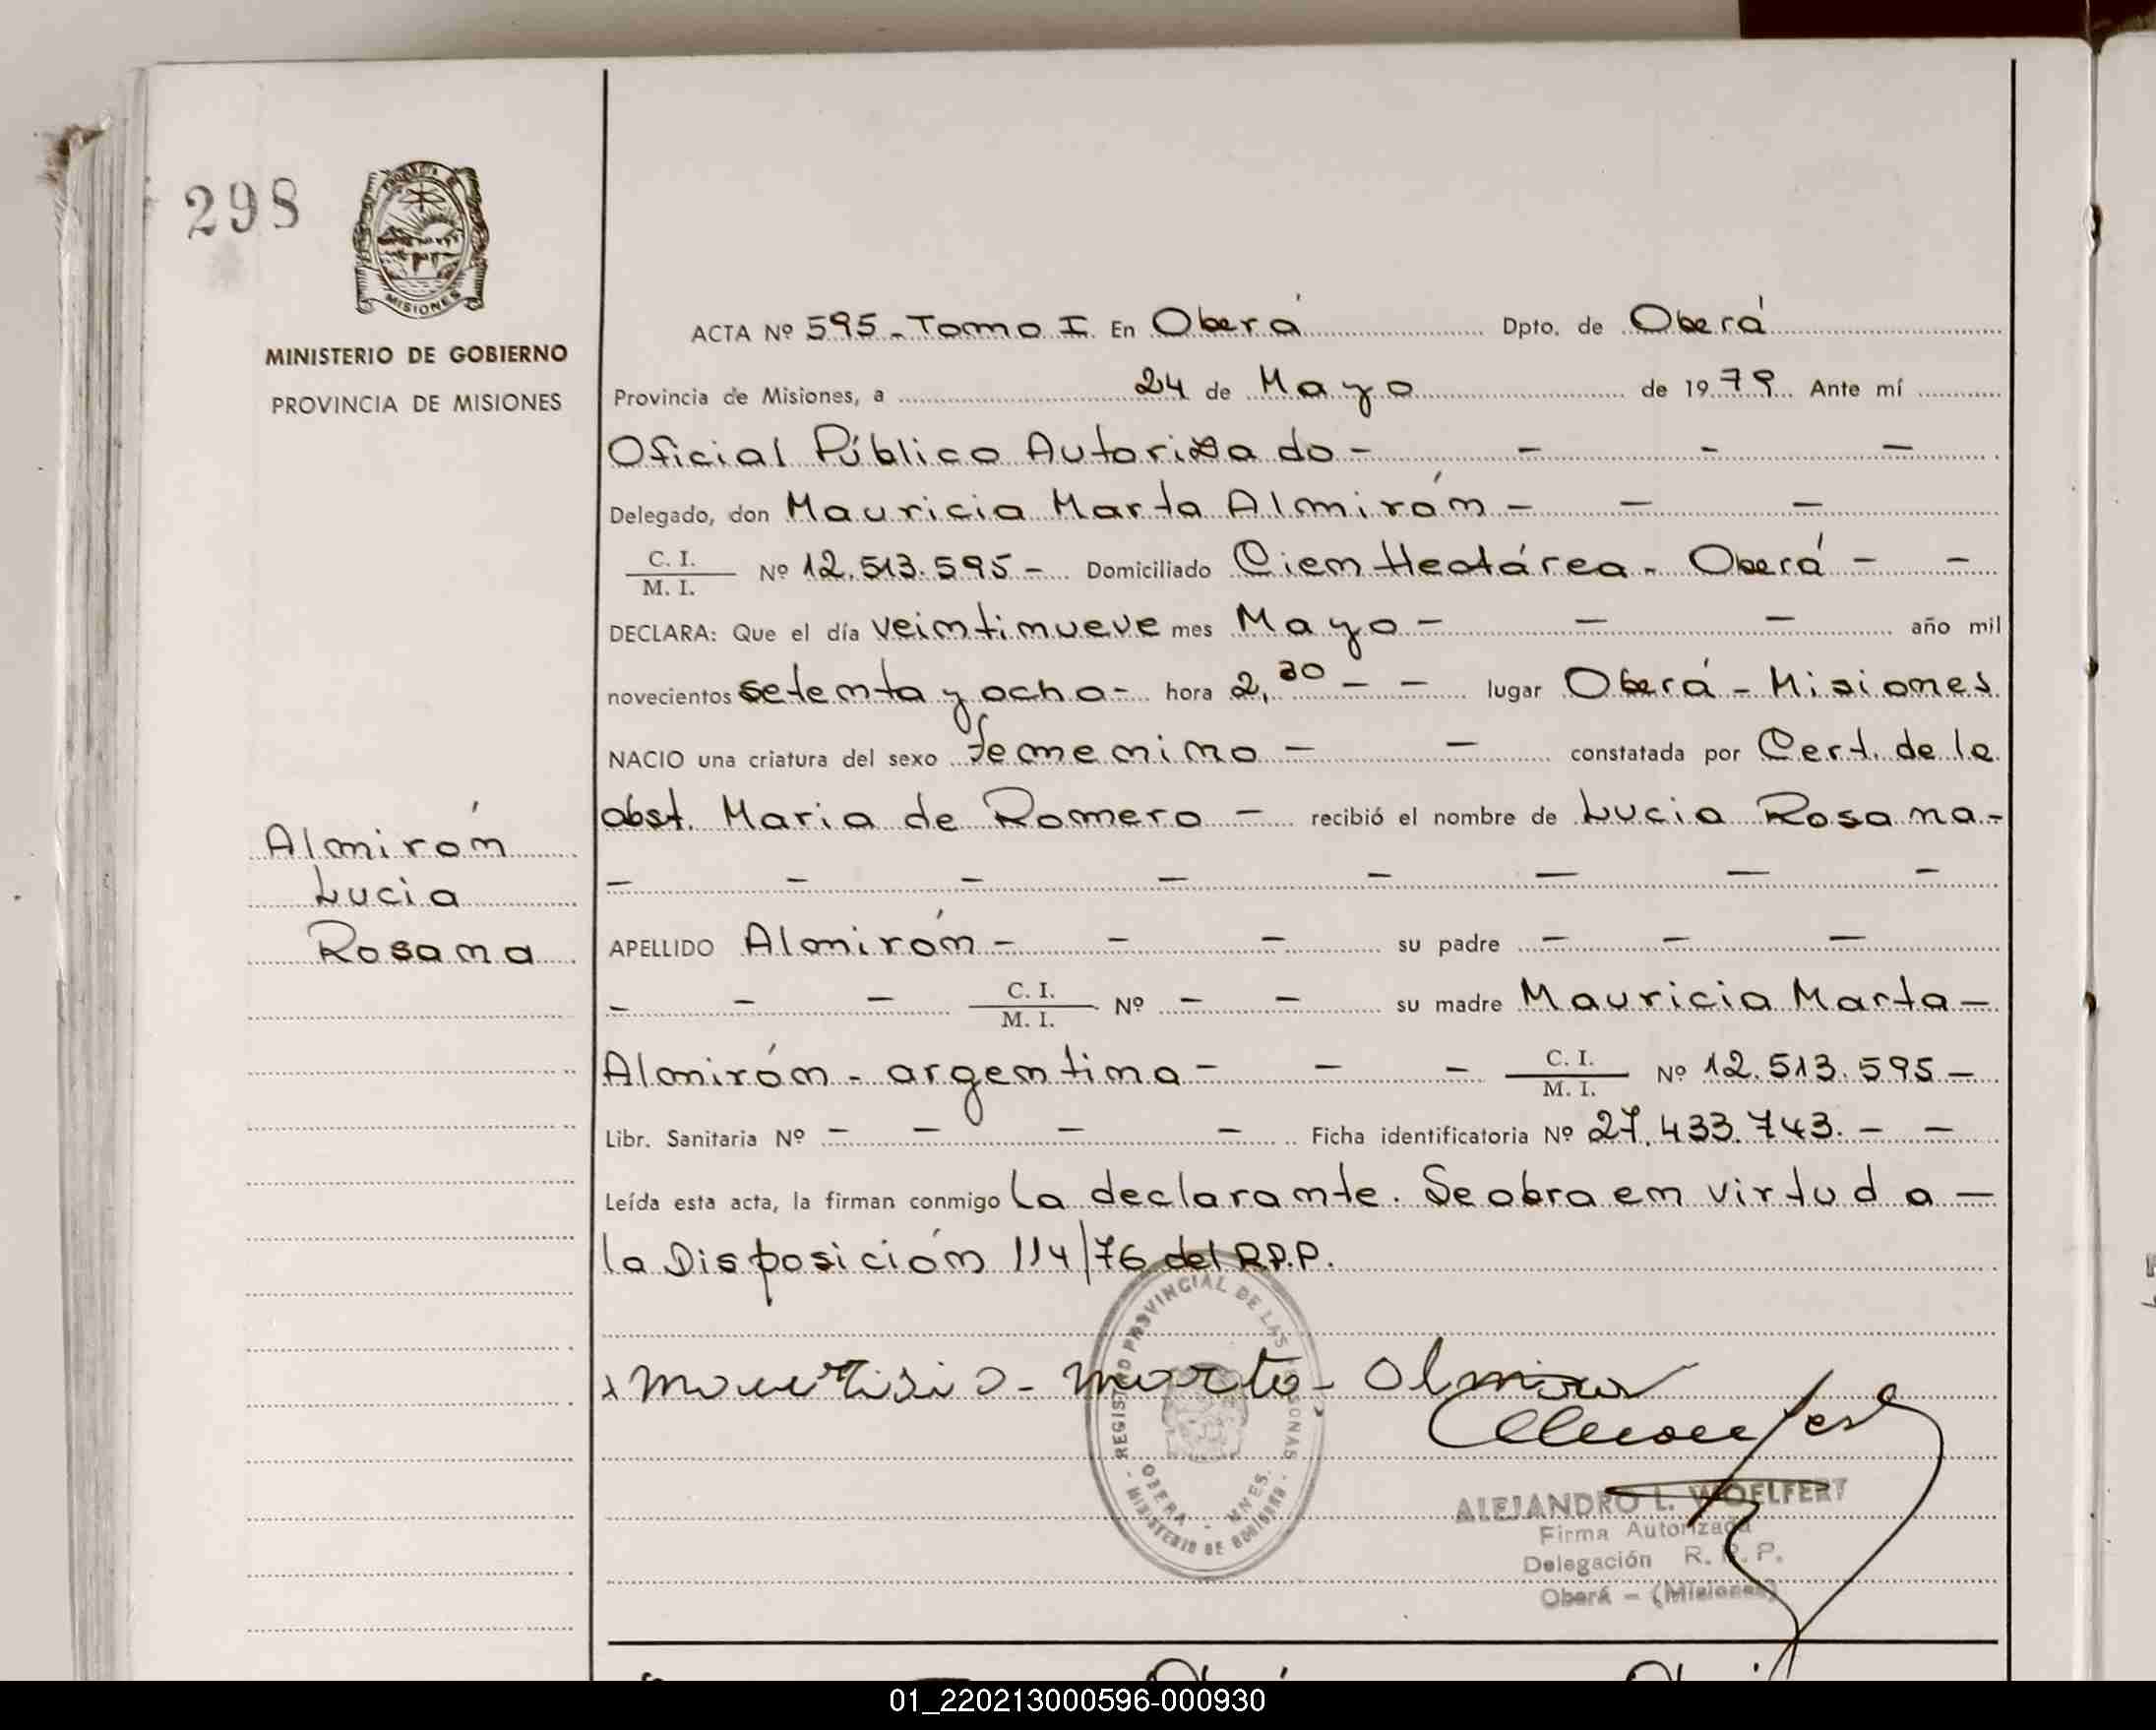 298
MISIONES
MINISTERIO DE GOBIERNO
PROVINCIA DE MISIONES
ACTA Nº 595 - Tomo I. En Oberá Dpto. de Oberá
Provincia de Misiones, a 24 de Mayo de 1979. Ante mí
Oficial Público Autorizado - - - -
Delegado, don Mauricia Marta Almirón - - -
C. I. / M. I. Nº 12.513.595 - Domiciliado Cien Hectárea - Oberá - -
DECLARA: Que el día veintinueve mes Mayo - - - año mil
novecientos setenta y ocho - hora 2,30 - - lugar Oberá - Misiones
NACIO una criatura del sexo femenino - - constatada por Cert. de la
obst. Maria de Romero - recibió el nombre de Lucia Rosana -
- - - - - - - -
Almirón
Lucia
Rosana
APELLIDO Almirón - - - su padre - - -
- - - C. I. / M. I. Nº - - su madre Mauricia Marta -
Almirón - argentina - - - C. I. / M. I. Nº 12.513.595 -
Libr. Sanitaria Nº - - - - Ficha identificatoria Nº 27.433.743. - -
Leída esta acta, la firman conmigo la declarante. Se obra en virtud a -
la Disposición 114/76 del R.P.P.
REGISTRO PROVINCIAL DE LAS PERSONAS
OBERA - MNES.
- MINISTERIO DE GOBIERNO -
x Maurisia - Marta - Almiron
ALEJANDRO L. WOELFERT
Firma Autorizada
Delegación R. P. P.
Oberá - (Misiones)
01_220213000596-000930